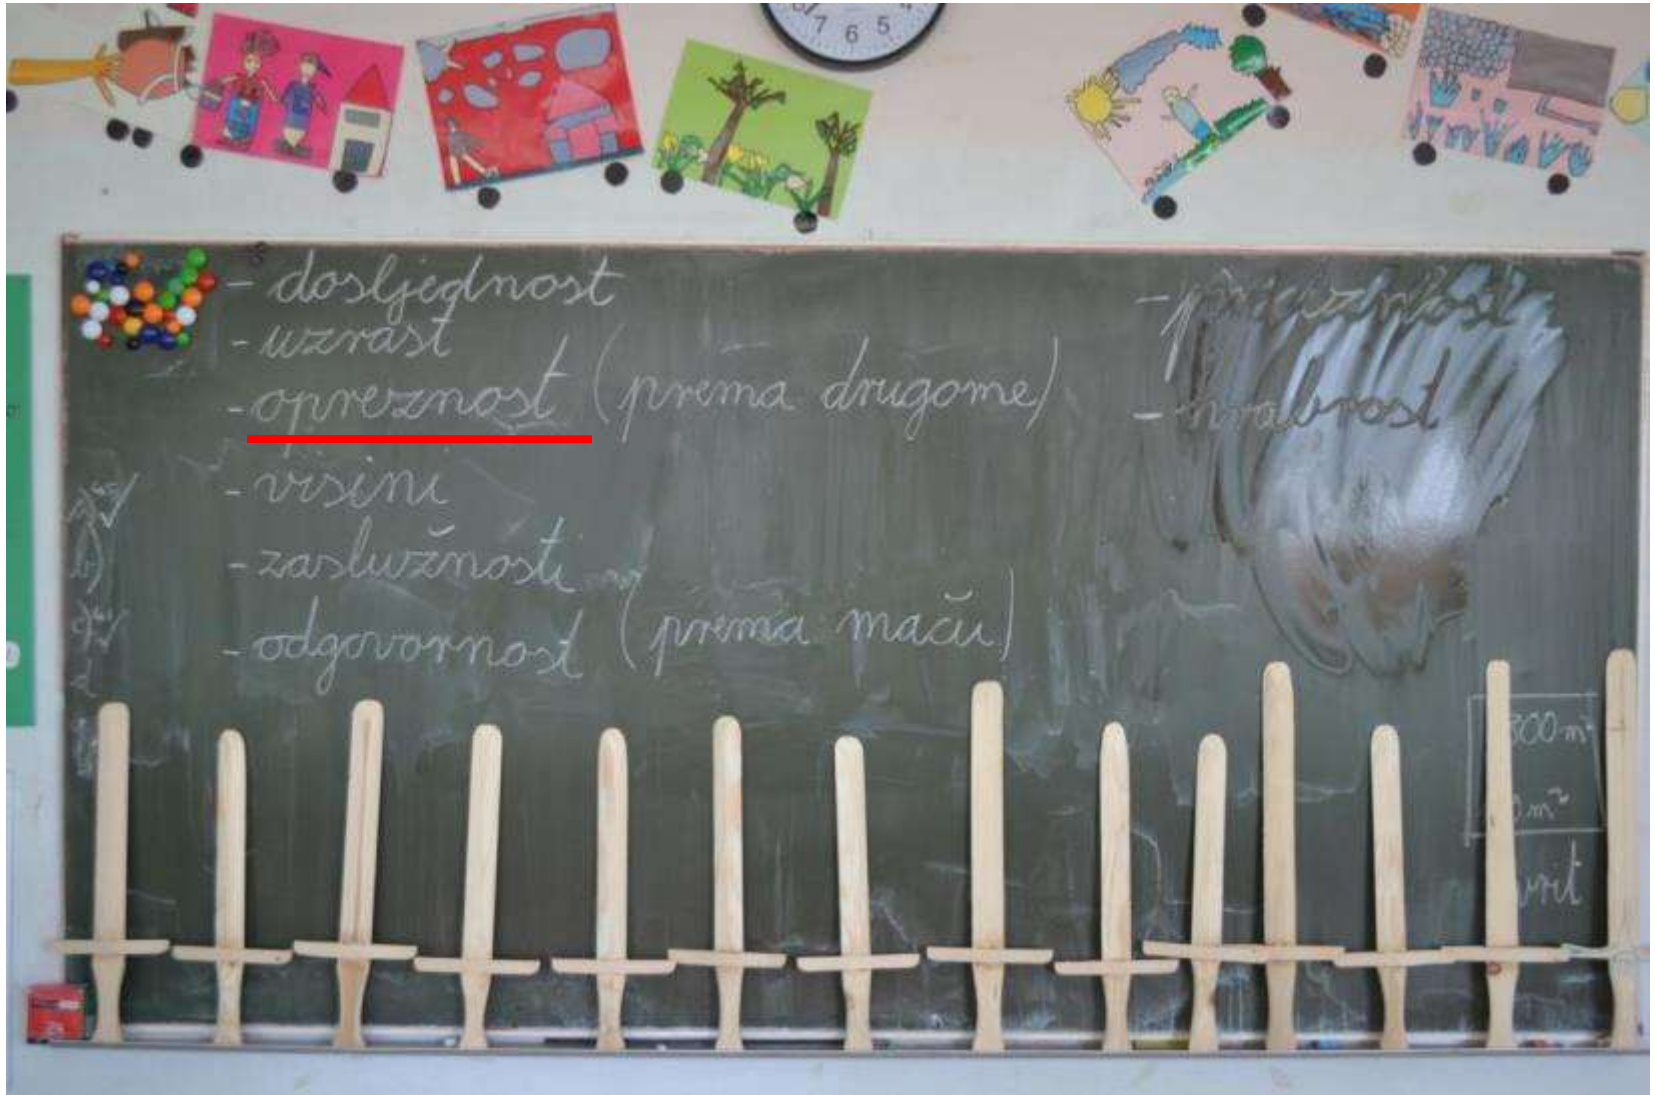 7 6 5
- dosljednost
- uzrast
- opreznost (prema drugome)
- visini
- zaslužnosti
- odgovornost (prema maču)
- hrabrost
300 m²
m²
vrt